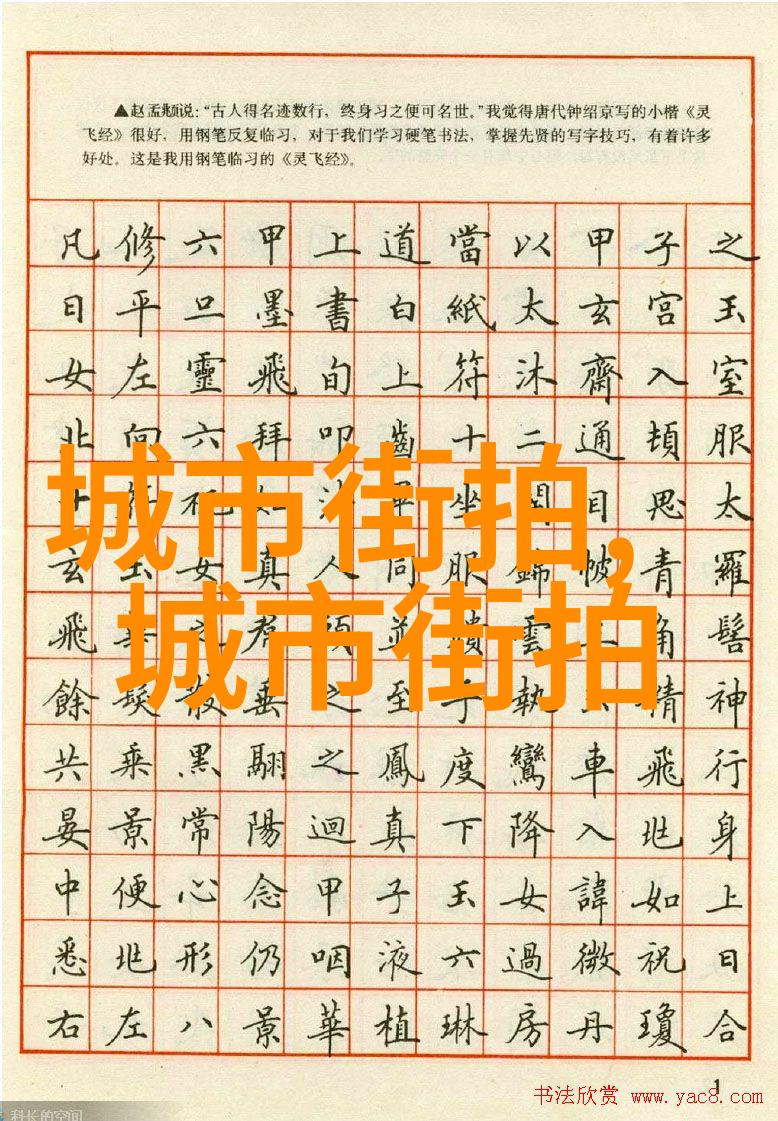 ▲赵孟頫说：“古人得名迹数行，终身习之便可名世。”我觉得唐代钟绍京写的小楷《灵
飞经》很好，用钢笔反复临习，对于我们学习硬笔书法，掌握先贤的写字技巧，有着许多
好处。这是我用钢笔临习的《灵飞经》。
凡修六甲上道當以甲子之
日平旦墨書白紙太玄宮玉
女左靈飛旬上符沐齋入室
北向六拜叩齒十二通頓服
十祝如法畢坐閉目思太
城市街拍,
玄玉女真人同服錦帔青羅
飛華之頭並頹雲三角髻
城市街拍
餘髮散垂之至手執玄精神
共乘黑翮之鳳度鸞車飛行
晏景常陽迴真下降入兆身
中便心念甲子玉女諱如上
悉兆形仍咽液六過微祝日
右左八景華植琳房丹瓊合
1
书法欣赏 www.yac8.com
科长的空间